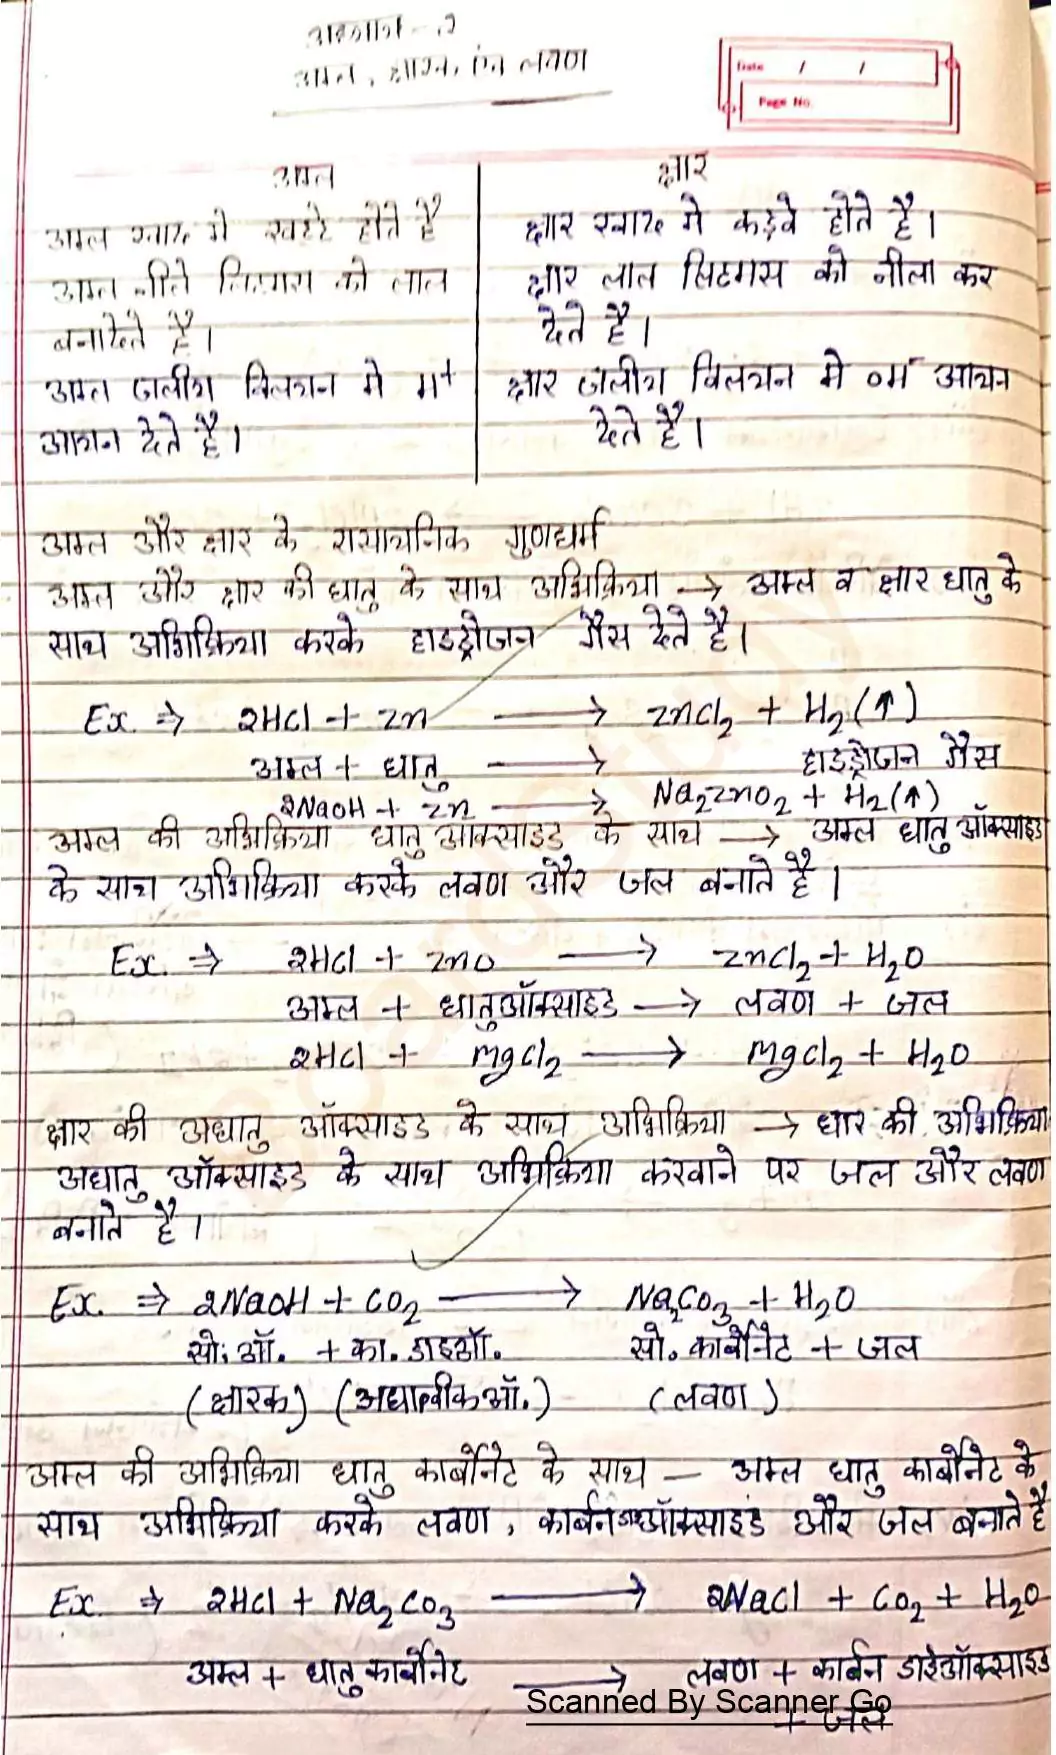 अध्याय - 2
अम्ल, क्षारक एवं लवण
Date / /
Page No.
अम्ल
क्षार
अम्ल स्वाद मे खट्टे होते है
क्षार स्वाद मे कड़वे होते है।
अम्ल नीले लिटमस को लाल
क्षार लाल लिटमस को नीला कर
बनादेते है।
देते है।
अम्ल जलीय विलयन मे H+
क्षार जलीय विलयन मे OH⁻ आयन
आयन देते है।
देते है।
अम्ल और क्षार के रासायनिक गुणधर्म
अम्ल और क्षार की धातु के साथ अभिक्रिया → अम्ल व क्षार धातु के
साथ अभिक्रिया करके हाइड्रोजन गैस देते है।
Ex. ⇒ 2HCl + Zn ⟶ ZnCl₂ + H₂(↑)
अम्ल + धातु ⟶ हाइड्रोजन गैस
2NaOH + Zn ⟶ Na₂ZnO₂ + H₂(↑)
अम्ल की अभिक्रिया धातु ऑक्साइड के साथ → अम्ल धातु ऑक्साइड
के साथ अभिक्रिया करके लवण और जल बनाते है।
Ex. ⇒ 2HCl + ZnO ⟶ ZnCl₂ + H₂O
अम्ल + धातुऑक्साइड ⟶ लवण + जल
2HCl + MgCl₂ ⟶ MgCl₂ + H₂O
क्षार की अधातु ऑक्साइड के साथ अभिक्रिया → क्षार की अभिक्रिया
अधातु ऑक्साइड के साथ अभिक्रिया करवाने पर जल और लवण
बनाते है।
Ex. ⇒ 2NaOH + CO₂ ⟶ Na₂CO₃ + H₂O
सो. ऑ. + का. डाइऑ. सो. कार्बोनेट + जल
(क्षारक) (अधात्वीक ऑ.) (लवण)
अम्ल की अभिक्रिया धातु कार्बोनेट के साथ — अम्ल धातु कार्बोनेट के
साथ अभिक्रिया करके लवण, कार्बन डाइऑक्साइड और जल बनाते है
Ex. ⇒ 2HCl + Na₂CO₃ ⟶ 2NaCl + CO₂ + H₂O
अम्ल + धातु कार्बोनेट ⟶ लवण + कार्बन डाईऑक्साइड
+ जल
Scanned By Scanner Go